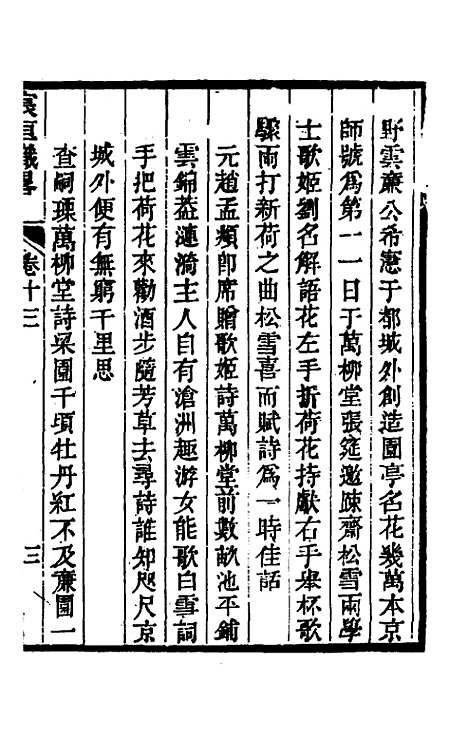 野雲廉公希憲于都城外創造園亭名花幾萬本京
師號爲第一一日于萬柳堂張筵邀疎齋松雪兩學
士歌姬劉名解語花左手折荷花持獻右手舉杯歌
驟雨打新荷之曲松雪喜而賦詩爲一時佳話
元趙孟頫卽席贈歌姬詩萬柳堂前數畝池平鋪
雲錦葢漣漪主人自有滄洲趣游女能歌白雪詞
手把荷花來勸酒步隨芳草去尋詩誰知咫尺京
城外便有無窮千里思
查嗣瑮萬柳堂詩梁園千頃牡丹紅不及廉園一
宸垣識畧
卷十三
三